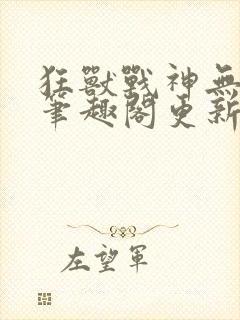 狂獸戰神無
筆趣閣更新
左望軍